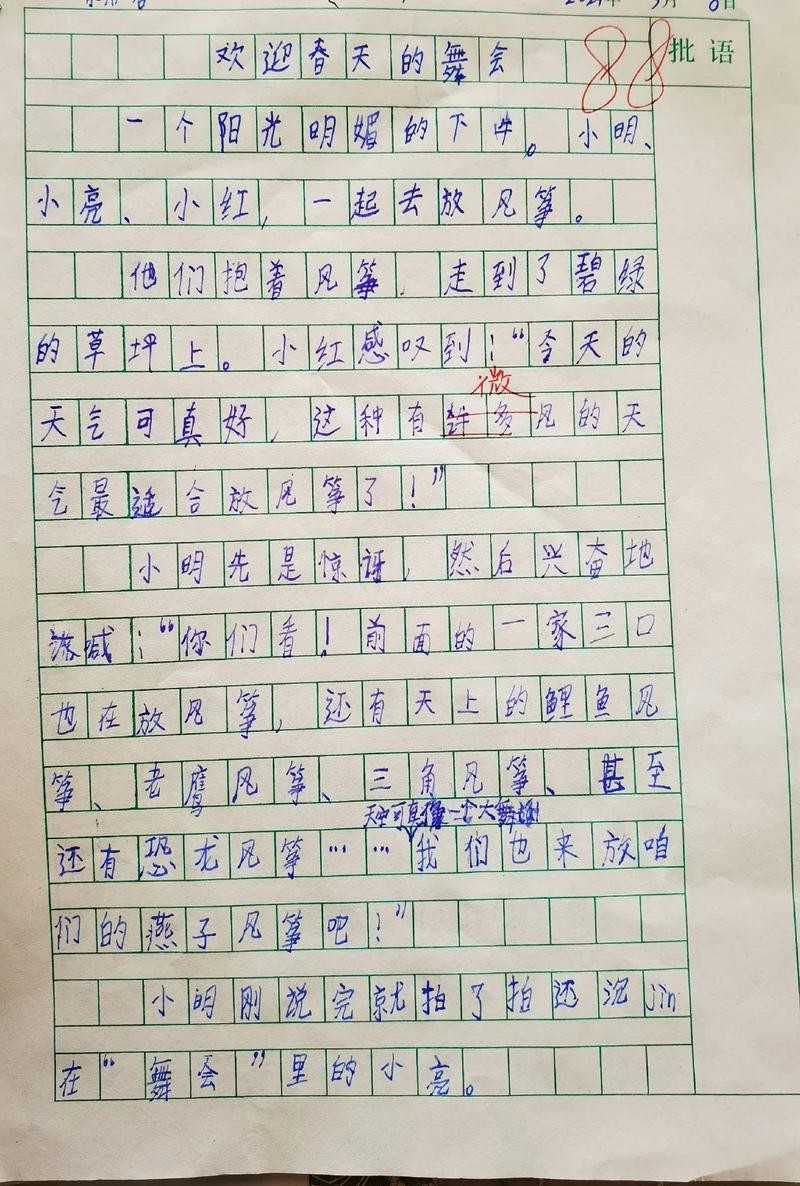 2021年3月8日
欢迎春天的舞会
88
批语
一个阳光明媚的下午。小明、
小亮、小红，一起去放风筝。
他们抱着风筝，走到了碧绿
的草坪上。小红感叹到：“今天的
微
天气可真好，这种有许多风的天
气最适合放风筝了！”
小明先是惊讶，然后兴奋地
喊：“你们看！前面的一家三口
也在放风筝，还有天上的鲤鱼风
筝、老鹰风筝、三角风筝、甚至
天空可真像一个大舞蹈
还有恐龙风筝……我们也来放咱
们的燕子风筝吧！”
小明刚说完就拍了拍还沉jin
在“舞会”里的小亮。